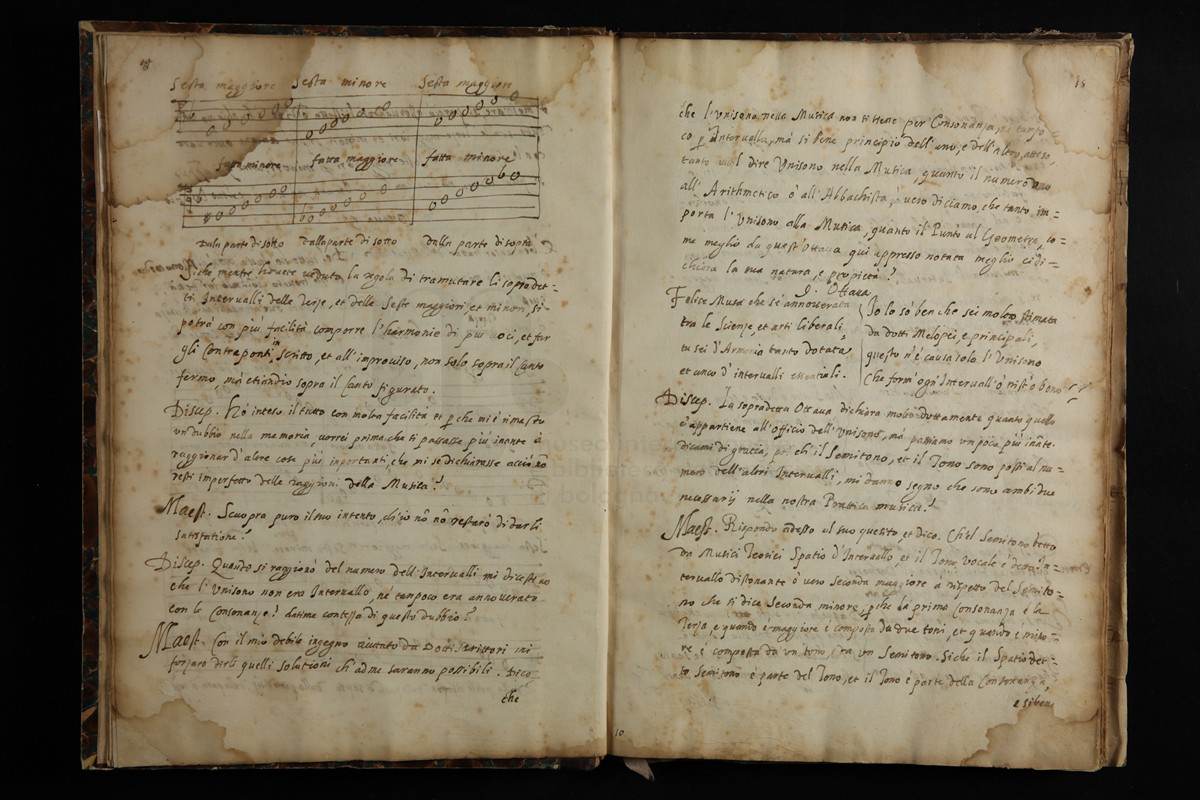 18
Sesta maggiore Sesta minore Sesta maggiore
fatta minore fatta maggiore fatta minore
Dalla parte di sotto Dalla parte di sotto dalla parte di sopra
Siche mentre havete veduto la regola di tramutare li sopradet=
ti Intervalli delle Terze, et delle Seste maggiori, et minori, si
potrà con più facilità comporre l'harmonie di più voci, et far
gli Contraponti in scritto, et all'improviso, non solo sopra il Canto
fermo, mà etiandio sopra il Canto figurato.
Discep. Hò inteso il tutto con molta facilità et p che mi è rimasto
un dubbio nella memoria, vorrei prima che ti passasse più inante à
raggionar d'altre cose più importanti, che mi se dichiarasse acciò nõ
resti imperfetto delle raggioni della Musica?
Maest. Scuopra puro il suo intento, ch'io nõ nõ restarò di darli
satisfatione.
Discep. Quando si raggionò del numero dell'Intervalli mi diceste
che l'Unisono non era Intervallo ne tampoco era annoverato
con le Consonanze? datime contezza di questo dubbio?
Maest. Con il mio debile ingegno aiutato da Dotti Scrittori mi
sforzarò dirli quelli solutioni ch'adme saranno possibili. Dico
che
18
che l'Unisono nella Musica non si tiene per Consonanza, ne tanpo
co p Intervallo, mà si bene principio dell'uno, e dell'altro, atteso,
tanto vuol dire Unisono nella Musica, quanto il numero uno
all'Arithmetico ò all'Abbachista, ò vero diciamo, che tanto im=
porta l'Unisono alla Musica, quanto il Punto al Geometra, co=
me meglio da quest'Ottava qui appresso notata meglio ci di=
chiara la sua natura, e propietà?
Ottava
Felice Musa che sè annoverata
tra le Scienze, et arti liberali,
tu sei d'Armonia tanto dotata
et anco d'intervalli essentiali.
Io lo sò ben che sei molto stimata
da dotti Melopei, e principali,
questo n'è causa solo l'Unisono
Che forma ogn'Intervall'ò trist'o bono
Discep. La sopradetta Ottava dichiara molto dottamente quanto quello
s'appartiene all'officio dell'Unisono, mà passiamo un poco più inãte
dicami di gratia, per ch'il Semitono, et il Tono sono posti al nu=
mero dell'altri Intervalli, mi danno segno che sono ambidue
necessarij nella nostra Prattica musica?
Maest. Rispondo adesso al suo quesito, et dico. Ch'el Semitono detto
da Musici Teorici Spatio d'Intervallo et il Tono Vocale è detto In=
tervallo dissonante ò vero Seconda maggiore à rispetto del Semito=
no che si dice Seconda minore, pche la prima Consonanza è la
Terza, e quando è maggiore è composta da due toni, et quando è mino=
re è composta da un tono, et da un Semitono. Siche il Spatio det=
to Semitono è parte del Tono, et il Tono è parte della Consonanza,
e siben
10